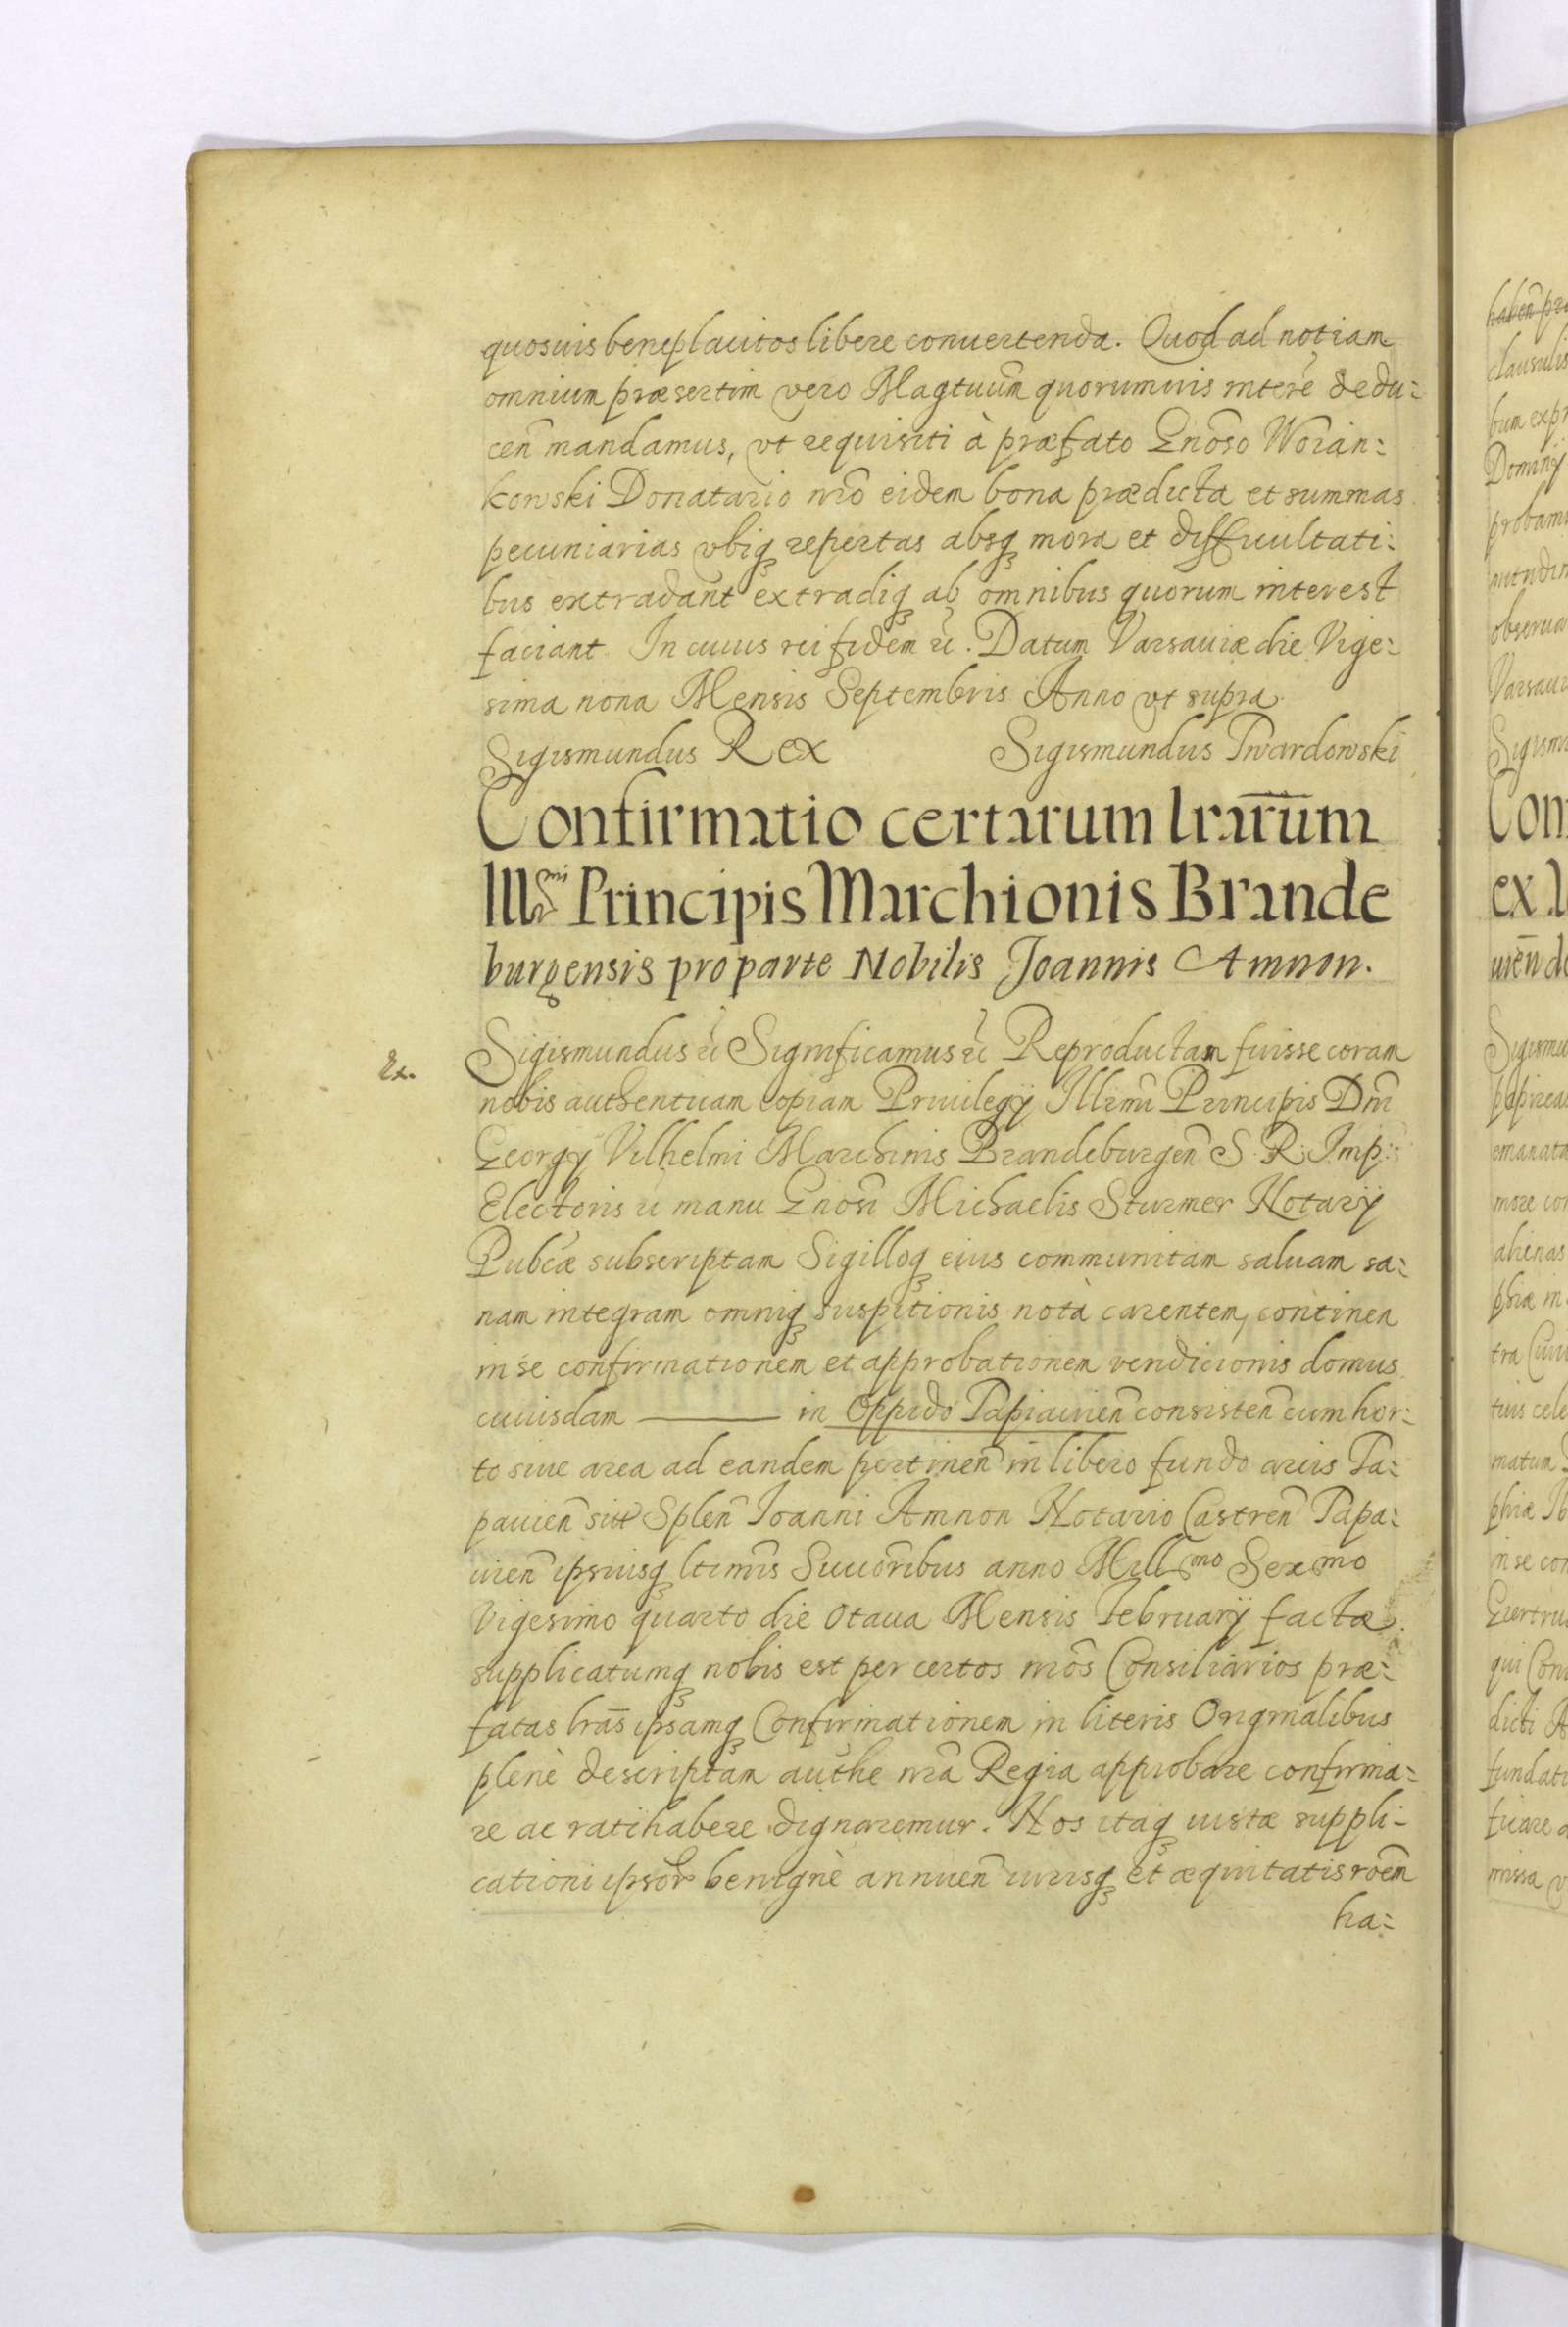 quosuis beneplacitos libere conuertenda. Quod ad notiam
omnium præsertim vero Magtuum̄ quorumuis intere᷉ dedu=
ceñ mandamus, vt requisiti à præfato Gnoso Woran=
kowski Donatario nr̄o eidem bona prædicta et summas
pecuniarias vbiq₃ repertas absq₃ mora et difficultati=
bus extradant extradiq₃ ab omnibus quorum interest
faciant. In cuius rei fidem &c. Datum Varsauiæ die Vige=
sima nona Mensis Septembris Anno vt supra.
Sigismundus Rex Sigismundus Twardowski
Confirmatio certarum lrarūm
Illsmi Principis Marchionis Brande
burgensis pro parte Nobilis Joannis Amnon.
Ex.
Sigismundus &c Significamus &c Reproductam fuisse coram
nobis authenticam copiam Priuilegÿ Illrmi Principis Dnī
Georgÿ Vilhelmi Marchinis Brandeburgeñ S. R: Imp:
Electoris &c manu Gnosi Michaelis Sturmer Notarÿ
Pubcæ subscriptam Sigilloq₃ eius communitam saluam sa=
nam integram omniq₃ suspitionis notà carentem, continen
in se confirmationem et approbationem vendicionis domus
cuiusdam ——— in Oppido Tapiauieñ consisteñ cum hor=
to siue area ad eandem pertineñ in libero fundo arcis Ta=
pauieñ sitæ Spleñ Ioanni Amnon Notario Castreñ Tapa=
uieñ ipsiusq₃ ltimis̄ Succoribus anno Millmo Sexmo
Vigesimo quarto die Otaua Mensis Februarÿ factæ.
supplicatumq₃ nobis est per certos nrōs Consiliarios præ=
fatas lrās ipsamq₃ Confirmationem in literis Originalibus
plenè descriptam authe nrā Regia approbare confirma=
re ac ratihabere dignaremur. Nos itaq₃ iustæ suppli=
cationi ipsor benignè annueñ iurisq₃ et æquitatis roēm
ha=